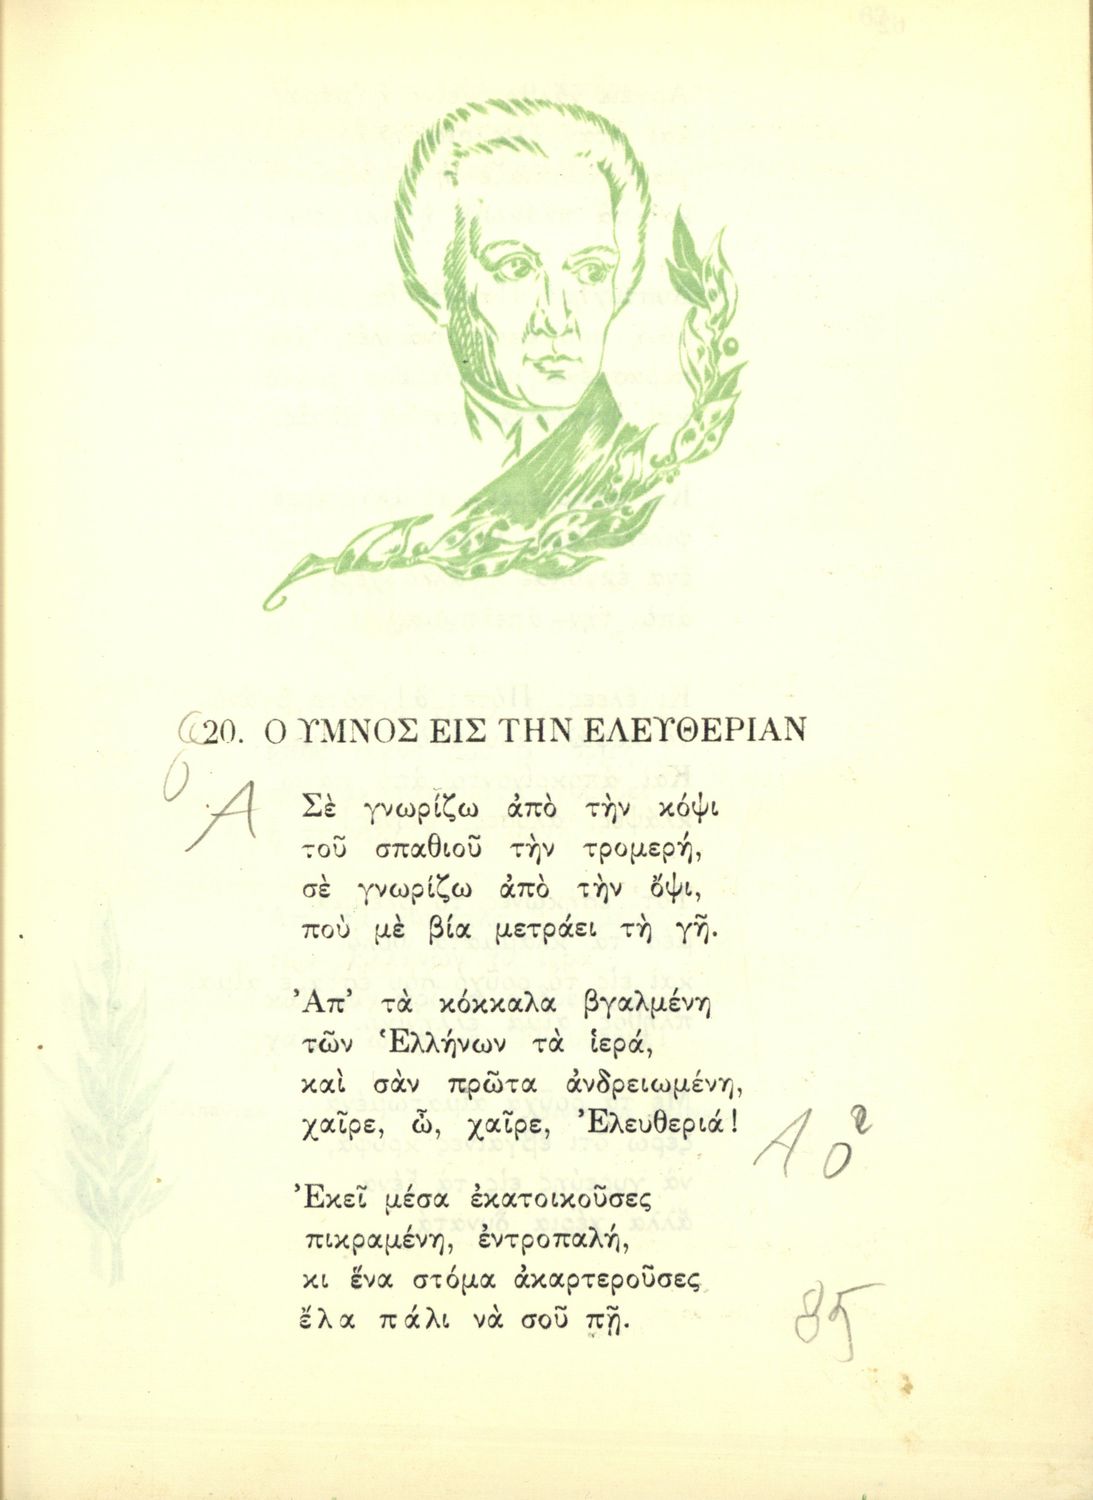 20. Ο ΥΜΝΟΣ ΕΙΣ ΤΗΝ ΕΛΕΥΘΕΡΙΑΝ
Α
Σὲ γνωρίζω ἀπὸ τὴν κόψι
τοῦ σπαθιοῦ τὴν τρομερή,
σὲ γνωρίζω ἀπὸ τὴν ὄψι,
ποὺ μὲ βία μετράει τὴ γῆ.
Ἀπ’ τὰ κόκκαλα βγαλμένη
τῶν Ἑλλήνων τὰ ἱερά,
καὶ σὰν πρῶτα ἀνδρειωμένη,
χαῖρε, ὦ, χαῖρε, Ἐλευθεριά!
Ἐκεῖ μέσα ἐκατοικοῦσες
πικραμένη, ἐντροπαλή,
κι ἕνα στόμα ἀκαρτεροῦσες
ἔλα πάλι νὰ σοῦ πῇ.
85